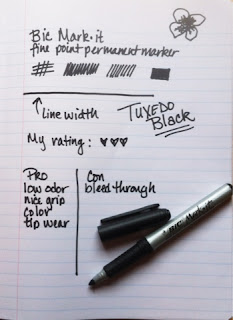 Bic Mark·it
fine point permanent marker
Line width
TUXEDO
BLACK
My rating: ♥♥♥
Pro
low odor
nice grip
color
tip wear
Con
bleed through
BIC Mark·it